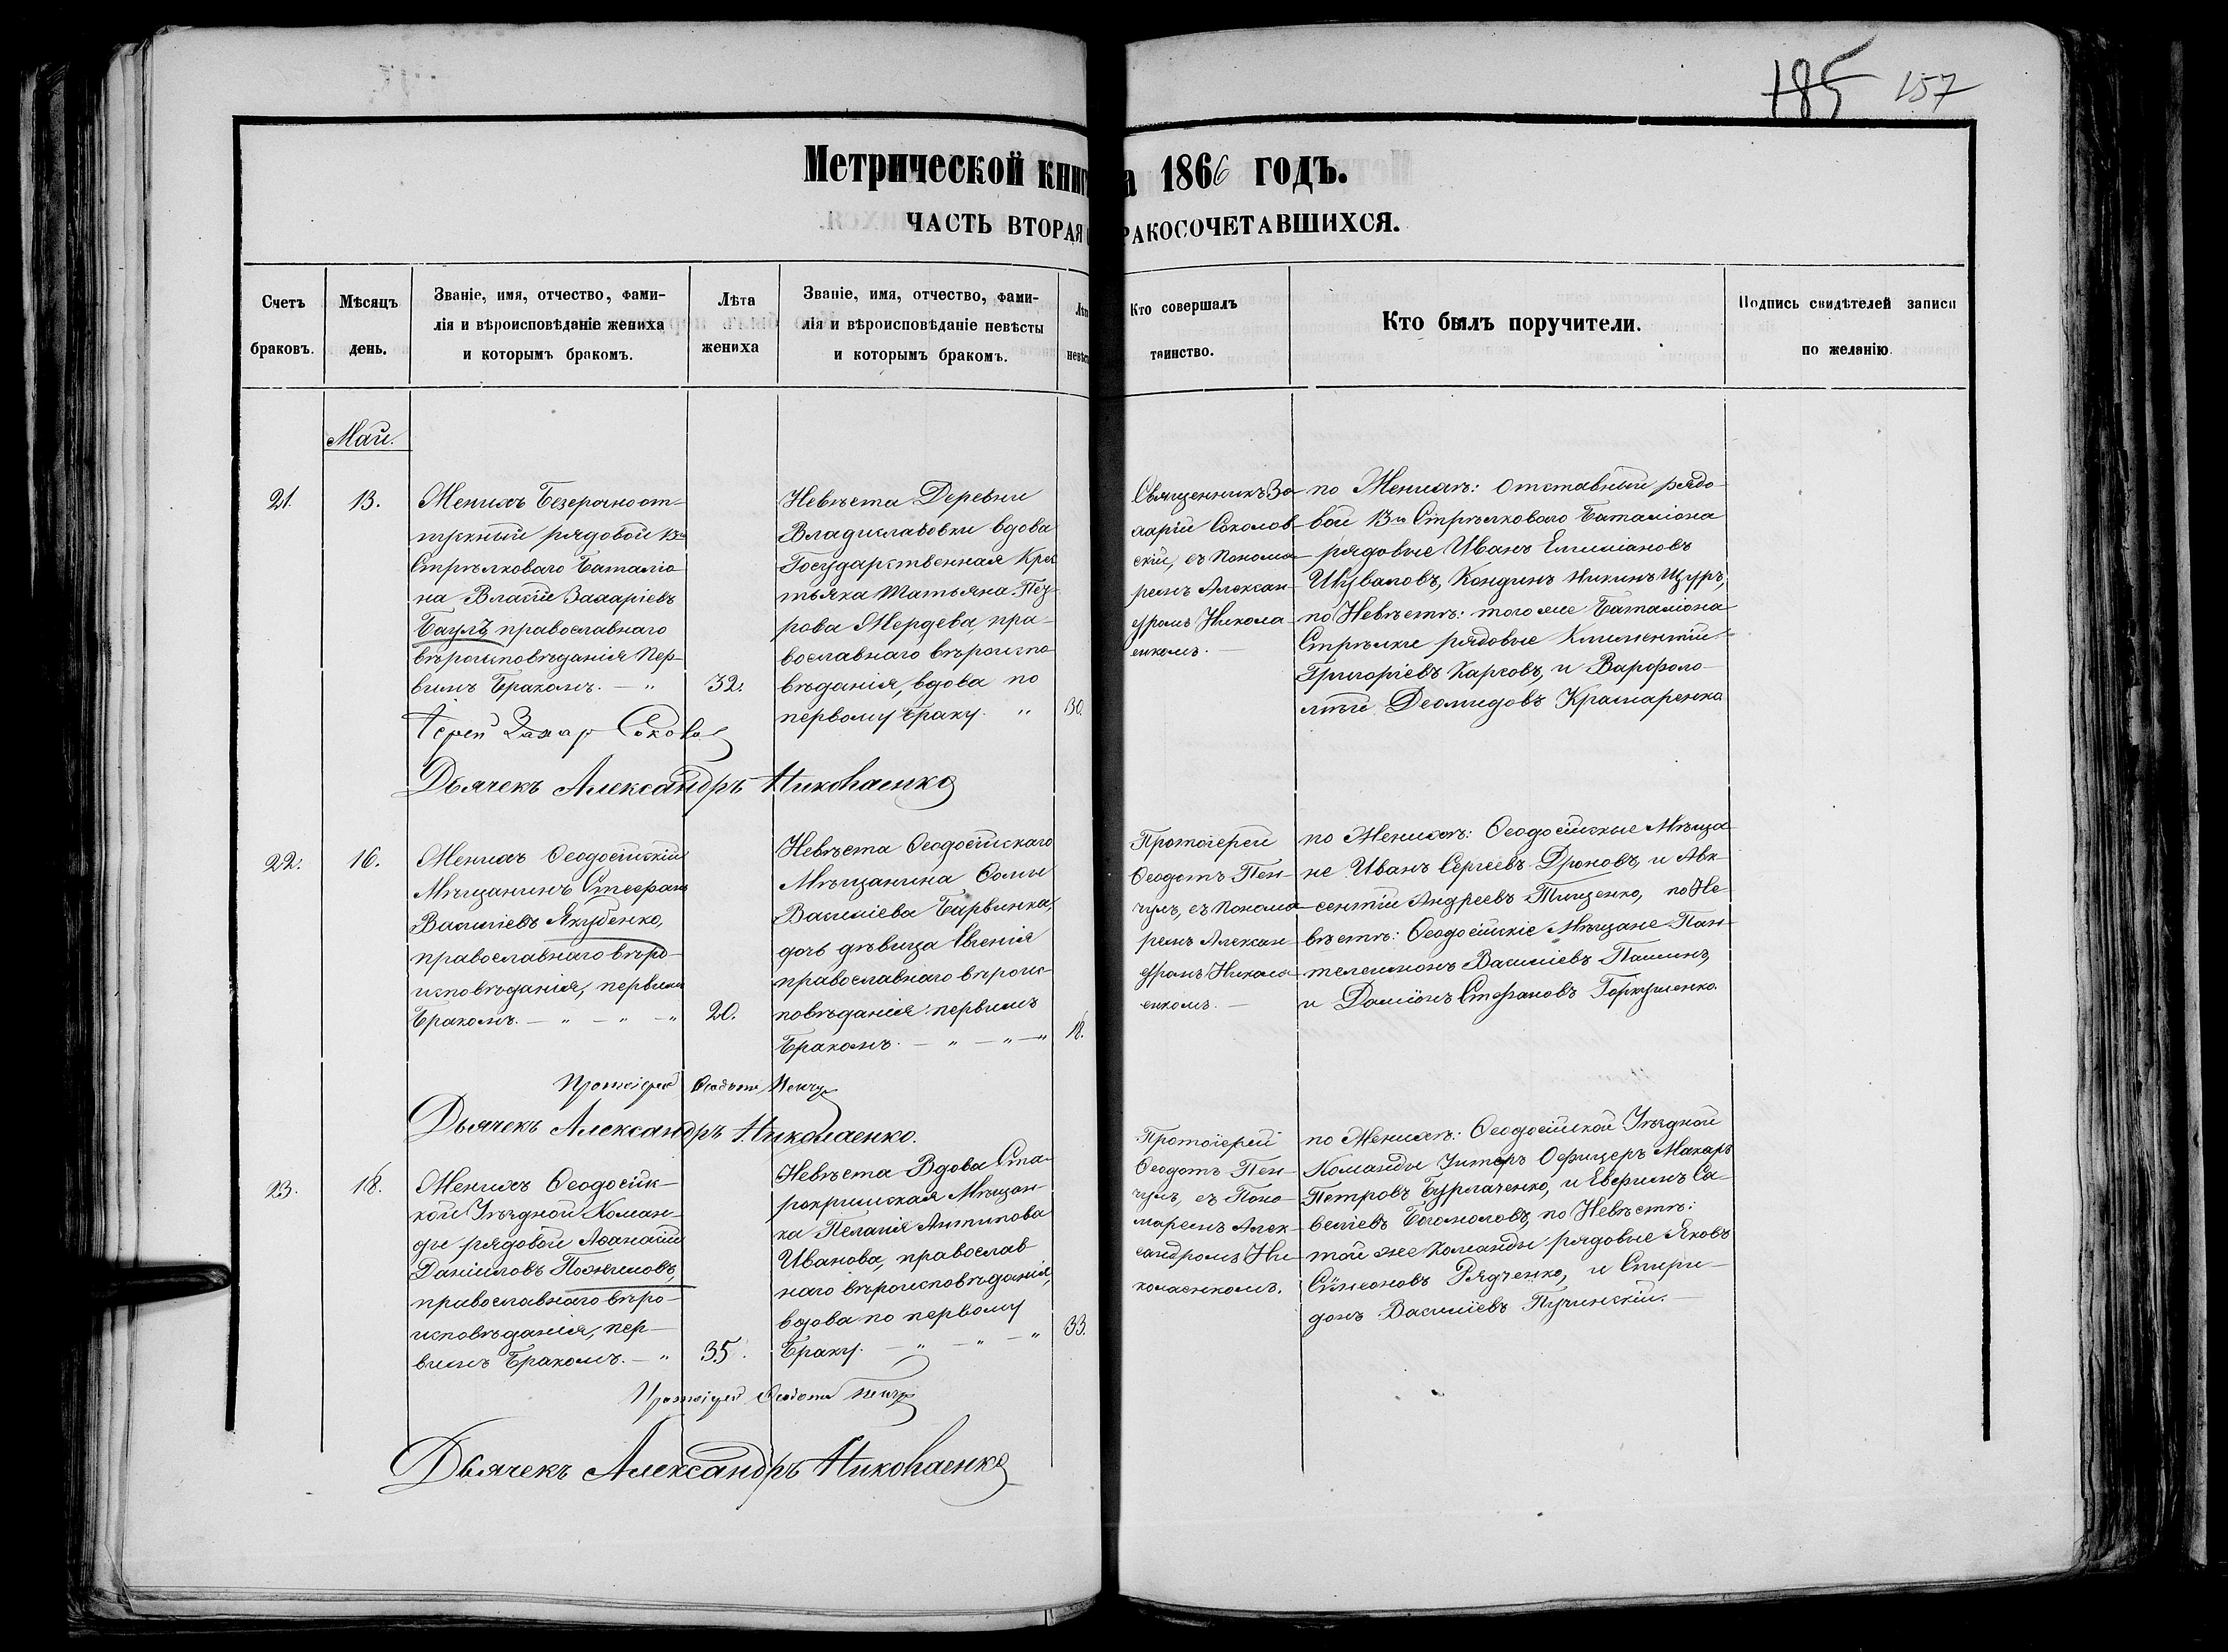 185 157
Метрической книг а 1866 годъ.
ЧАСТЬ ВТОРАЯ РАКОСОЧЕТАВШИХСЯ.
Счетъ браковъ.
Мѣсяцъ день.
Званіе, имя, отчество, фами-
лія и вѣроисповѣданіе жениха
и которымъ бракомъ.
Лѣта
жениха
Званіе, имя, отчество, фами-
лія и вѣроисповѣданіе невѣсты
и которымъ бракомъ.
Кто совершалъ
таинство.
Кто былъ поручители.
Подпись свидѣтелей записи
по желанію.
Май.
21. 13.
Женихъ Безсрочноот-
пускный рядовой 13го
Стрѣлковаго Баталіо
на Власій Захаріевъ
Бауль, православнаго
вѣроисповѣданія пер-
вымъ бракомъ. — "
32.
Невѣста Деревни
Владиславовки вдова
Государственная Крес
тьяка Татьяна Пет-
рова Жердева, пра-
вославнаго вѣроиспо
вѣданія, вдова по
первому браку. "
30.
Священникъ За
харій Соколов
скій, съ понома
ремъ Алексан
дромъ Никола
енкомъ. —
по Женихѣ: Отставный рядо-
вой 13го Стрѣлковаго Баталіона
рядовые Иванъ Емиліановъ
Шуваловъ, Кондинъ Никинъ Щуръ;
по Невѣстѣ: тогоже Баталіона
Стрѣлки рядовые Климентій
Григоріевъ Карговъ, и Варфоло-
мѣй Деомидовъ Крамаренко
Іерей Захар Соколов
Дьячекъ Александръ Николаенко
22. 16.
Женихъ Ѳеодосійскій
Мѣщанинъ Стефанъ
Василіевъ Якубенко,
православнаго вѣро-
исповѣданія, первымъ
бракомъ. — " — " — "
20.
Невѣста Ѳеодосійскаго
Мѣщанина Ѳомы
Василіева Барвинка,
дочь дѣвица Евгенія
православнаго вѣроис-
повѣданія первымъ
бракомъ. — " — " — "
18.
Протоіерей
Ѳеодотъ Пен-
чулъ, съ понома
ремъ Алексан
дромъ Никола
енкомъ. —
по Женихѣ: Ѳеодосійские Мѣща
не Иванъ Сергѣевъ Дроновъ, и Авк-
сентій Андреевъ Тищенко, по Не-
вѣстѣ: Ѳеодосійскіе Мѣщане Пан-
телеимонъ Василіевъ Пашинъ,
и Даміонъ Стефановъ Горкушенко.
Протоіерей Ѳеодотъ Пенчулъ
Дьячекъ Александръ Николаенко.
23. 18.
Женихъ Ѳеодосійс-
кой Уѣздной Коман-
ды рядовой Аѳанасій
Даніиловъ Пожиловъ,
православнаго вѣро-
исповѣданія, пер-
вымъ бракомъ. — "
35.
Невѣста Вдова Ста-
рокрымская Мѣщан-
ка Пелагія Антипова
Иванова, православ-
наго вѣроисповѣданія,
вдова по первому
браку. — " — " — "
33.
Протоіерей
Ѳеодотъ Пен-
чулъ, съ Поно-
маремъ Алек-
сандромъ Ни-
колаенкомъ.
по Женихѣ: Ѳеодосійской Уѣздной
Команды Унтеръ Офицеръ Макаръ
Петровъ Бурлаченко, и Евфимъ Са-
веліевъ Богомоловъ, по Невѣстѣ:
той же Команды рядовые Яковъ
Симеоновъ Рядченко, и Спири-
донъ Василіевъ Пучинскій. —
Протоіерей Ѳеодотъ Пенчулъ
Дьячекъ Александръ Николаенко